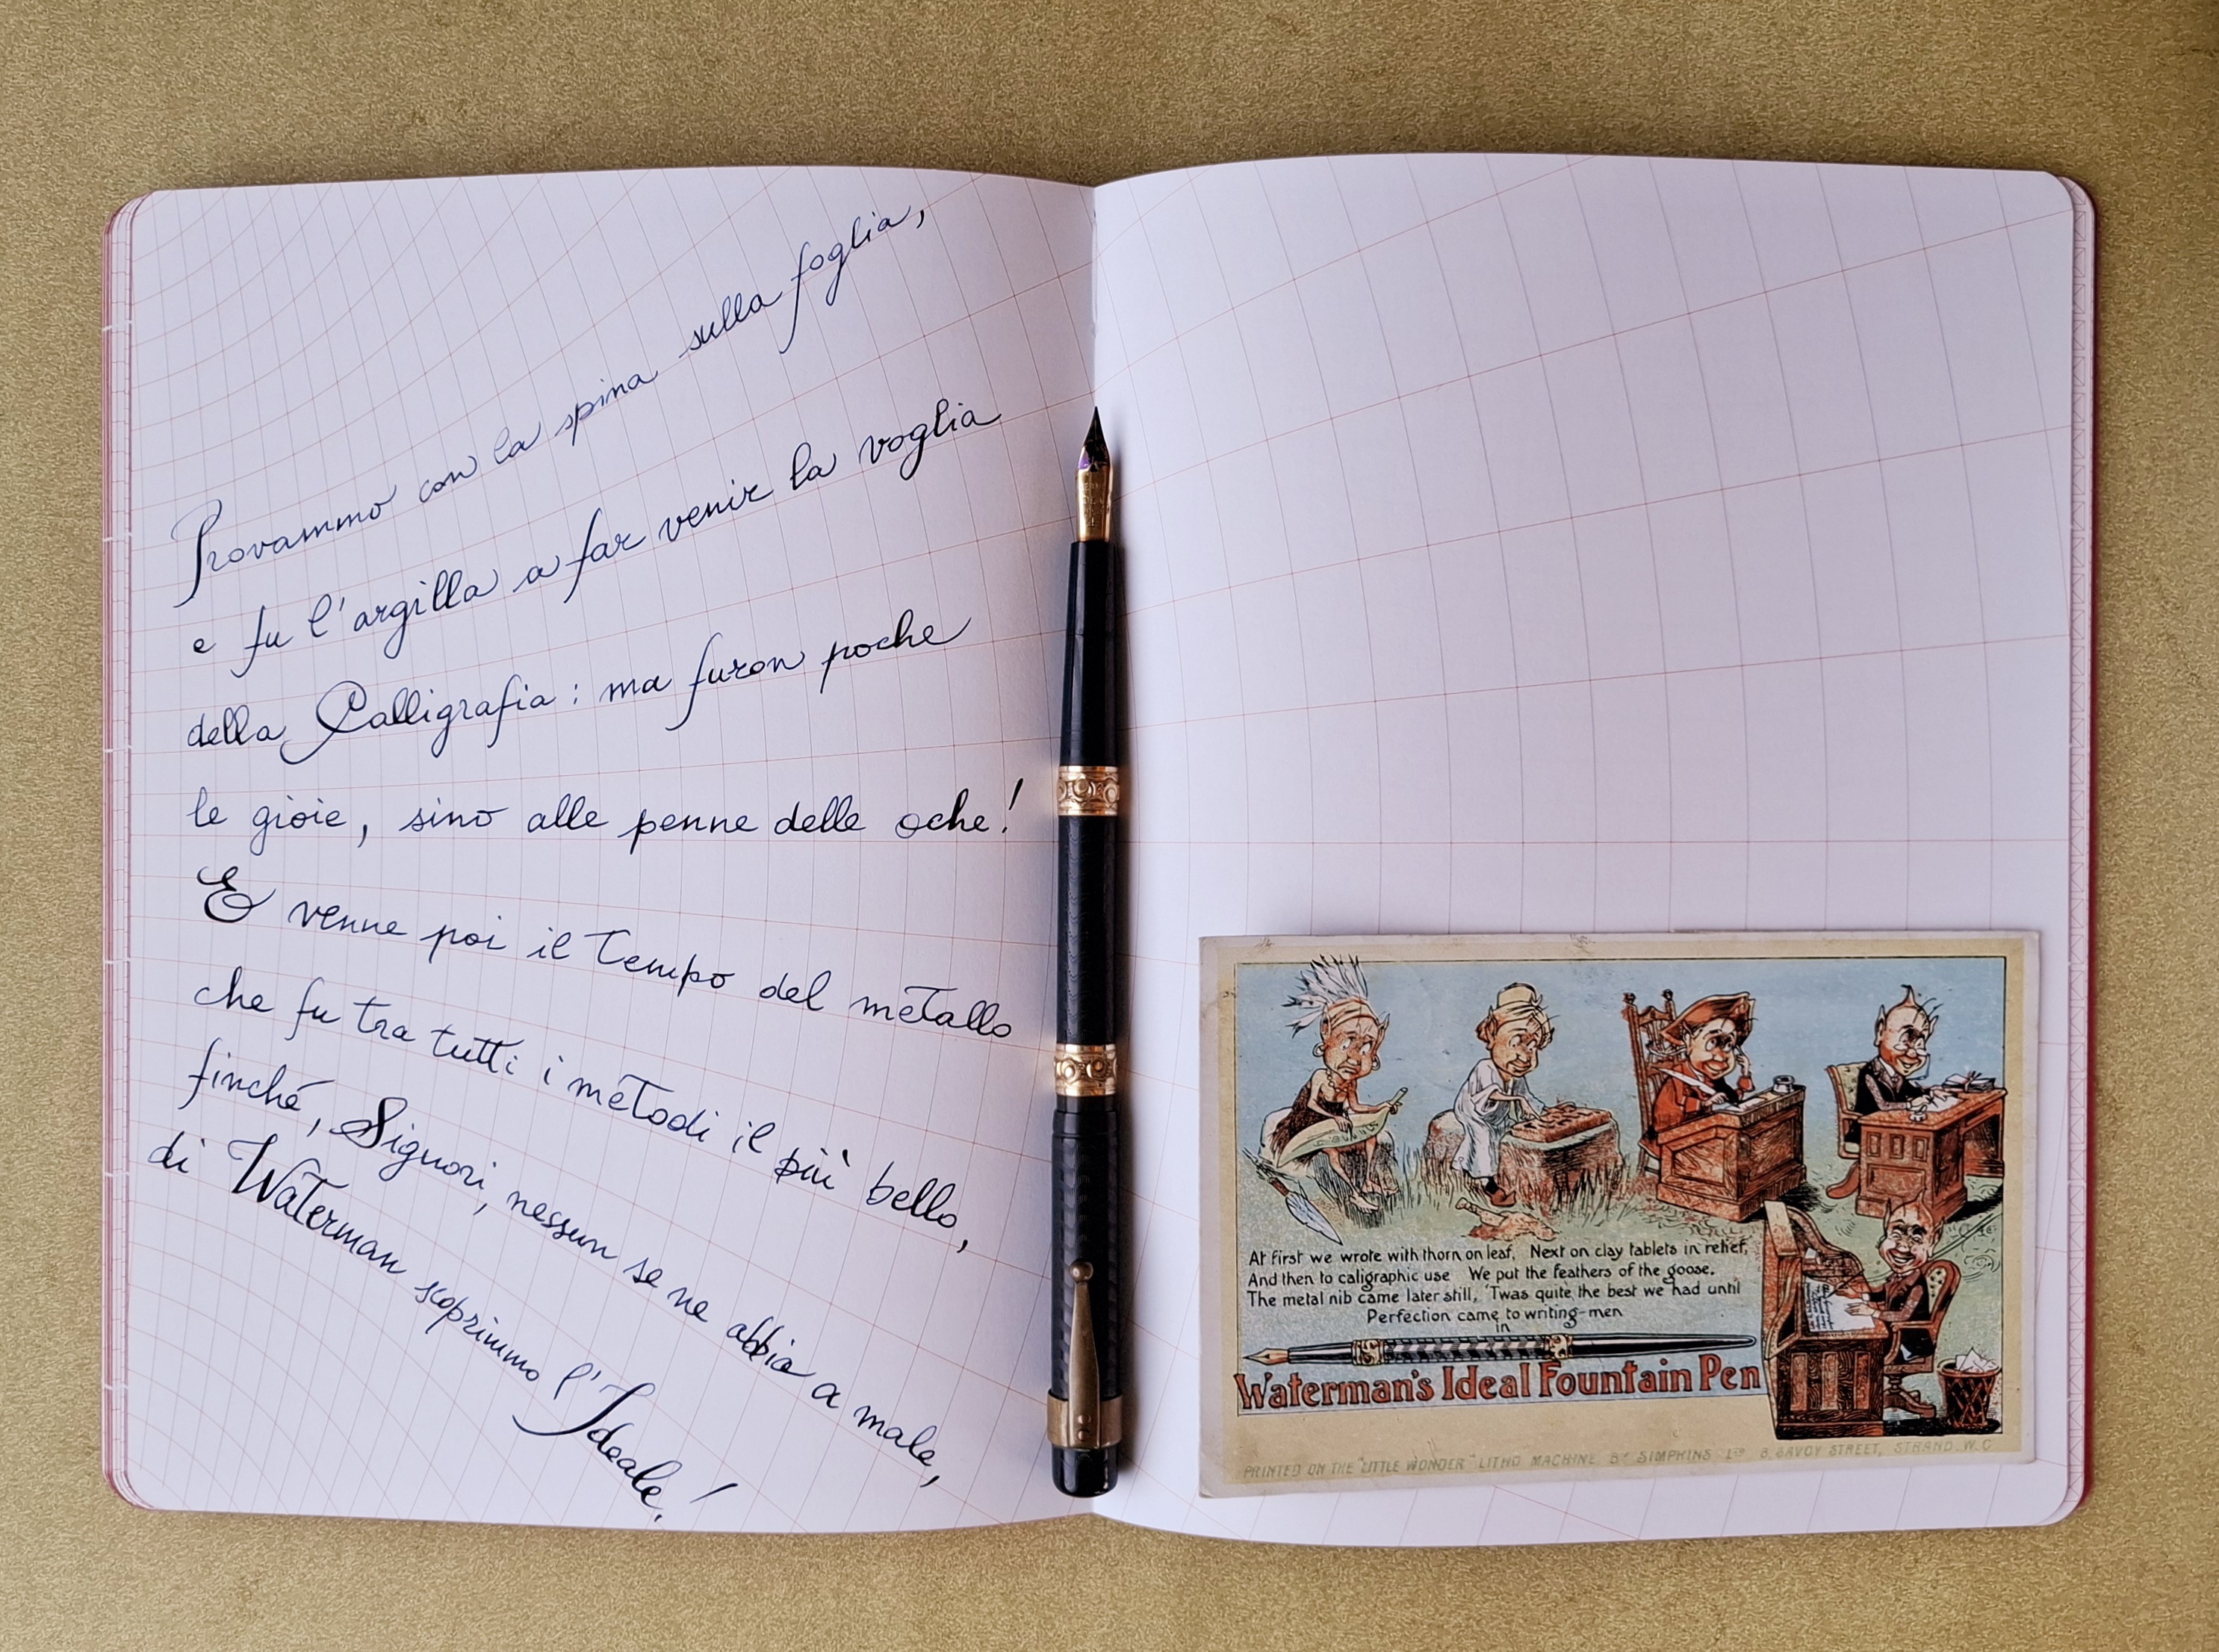 Provammo con la spina sulla foglia,
e fu l'argilla a far venir la voglia
della Calligrafia: ma furon poche
le gioie, sino alle penne delle oche!
E venne poi il tempo del metallo
che fu tra tutti i metodi il più bello,
finché, Signori, nessun se ne abbia a male,
di Waterman scoprimmo l'Ideale!
At first we wrote with thorn on leaf, Next on clay tablets in relief,
And then to caligraphic use We put the feathers of the goose.
The metal nib came later still, 'Twas quite the best we had until
Perfection came to writing-men
in
Waterman's Ideal Fountain Pen
PRINTED ON THE "LITTLE WONDER" LITHO MACHINE BY SIMPKINS LTD 8, SAVOY STREET, STRAND. W.C